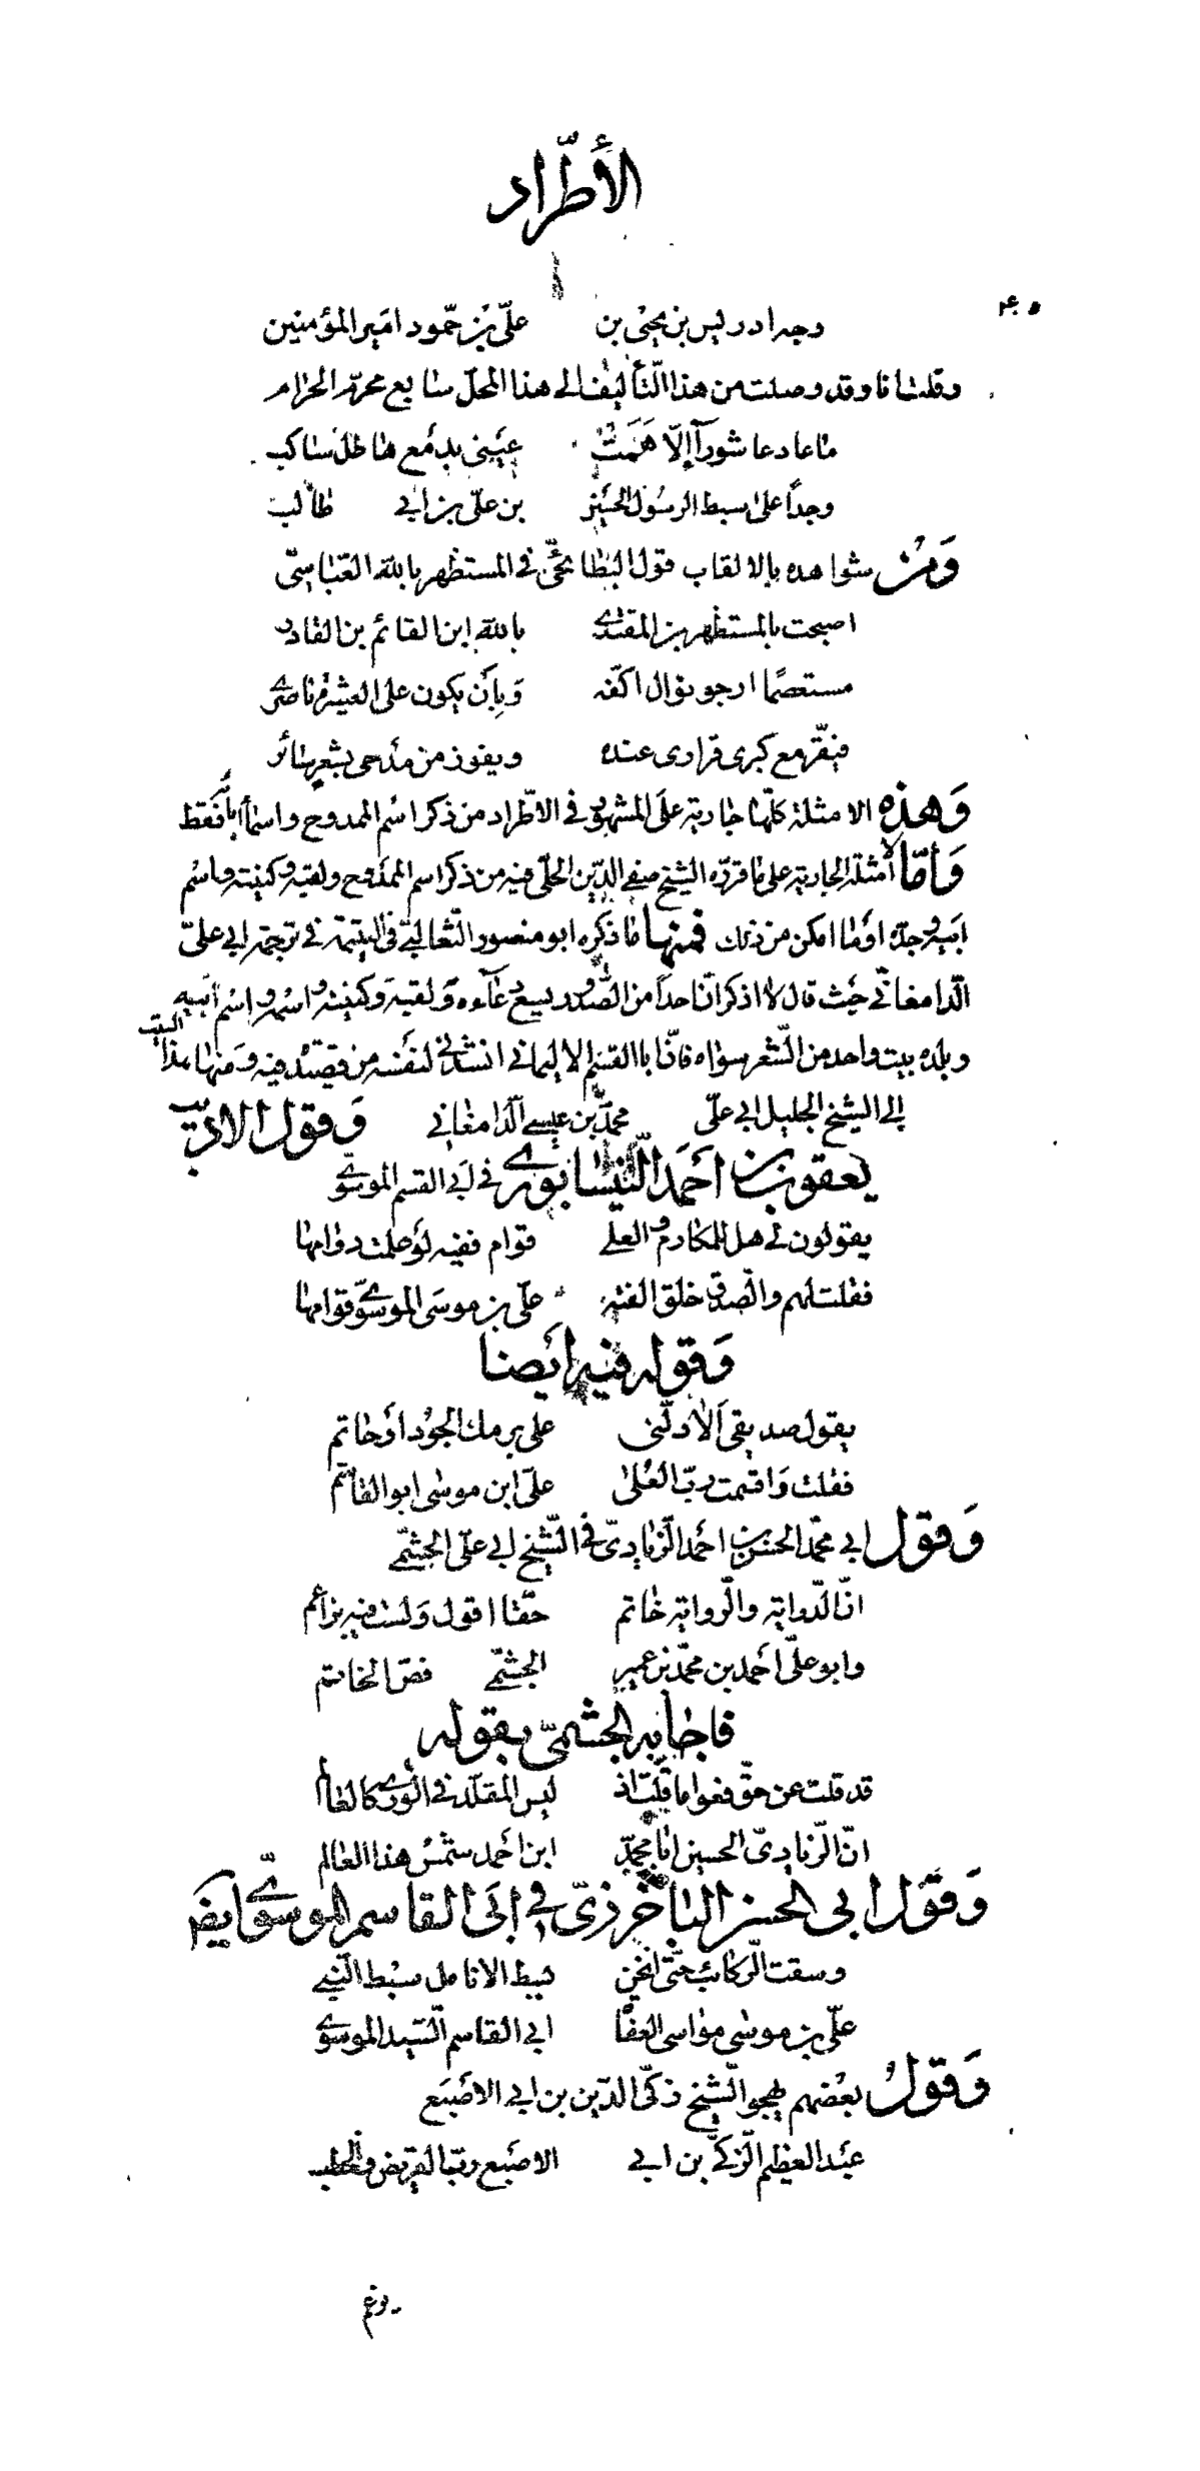 الأطّراد
وجه ادريس بن يحيى بن علىّ بن حمّود امير المؤمنين
وقلت انا وقد وصلت من هذا التّأليف الى هذا المحلّ سابع محرّم الحرام
ما عاد عاشورآ إلّا هَمَتْ عينى بدمع هاطل ساكب
وجداً على سبط الرسول الحسين بن علىّ بن ابى طالب
وَمن شواهده بالالقاب قول البطائحىّ فى المستظهر بالله العبّاسىّ
اصبحت بالمستظهر بن المقتدى بالله ابن القائم بن القادر
مستعصمًا ارجو نوال اكفّه وَبأن يكون على العشيرة ناصرى
فيقرّ مع كبرى قرارى عنده ويفوز من مدحى بشعر سائر
وَهذه الامثلة كلّها جارية على المشهور فى الاطّراد من ذكر اسم الممدوح واسمآ ابآئه فقط
وَأمّا الأمثلة الجارية على ما قرّره الشيخ صفى الدّين الحلّى فيه من ذكر اسم الممدوح ولقبه وكنيته واسم
ابيه وجدّه اوما امكن من ذلك فمنها ما ذكره ابو منصور الثّعالبىّ فى اليتيمة فى ترجمة ابى علىّ
الدّامغانى حيث قال لا اذكر انّ احداً من الصّدور يسع دعآءه ولقبه وكنيته واسمه واسم ابيه
وبلده بيت واحد من الشّعر سواه فانّ ابا القسم الاليمانى انشدنى لنفسه من قصيدة فيه وَمنها هذا البيت
إلى الشيخ الجليل ابى علىّ محمّد بن عيسى الدّامغانى وَقول الاديب
يعقوب بن احمد النّيسابورى فى ابى القسم الموسوى
يقولون لى هل للمكارم والعلى قوام ففيه لو علمت دوامها
فقلت لهم والصّدق خلق الفته علىّ بن موسى الموسوىّ قوامها
وَقوله فيه ايضا
يقول صديقى ألا دلّنى على برمك الجود اوحاتم
فقلت وَاقسمت ربّ العُلى علىّ ابن موسى ابو القاسم
وَقول ابى محمّد الحسن بن احمد الزّيادىّ فى الشّيخ ابى علىّ الجشمّى
انّ الدّراية والرّواية خاتم حقّا اقول وَلست فيه بزاعم
وابو علىّ احمد بن محمّد بن عمير الجشمّى فصّ الخاتم
فاجابه الجشمىّ بقوله
قد قلت عن حقّ فعوا ما قلت اذ ليس المقلّد فى الورى كالعالم
انّ الزّيادىّ الحسين ابا محمّد ابن احمد شمس هذا العالم
وَقول ابى الحسن الباخرزىّ فى ابى القاسم الموسوىّ ايضا
وسقت الرّكائب حتّى انخن ببسط الانامل سبط النّبى
علىّ بن موسى مواسى العفاة ابى القاسم السّيّد الموسوى
وَقول بعضهم يهجو الشّيخ زكىّ الدّين بن ابى الاصبع
عبد العظيم الزّكىّ بن ابى الاصبع ربّ القريض والخطب